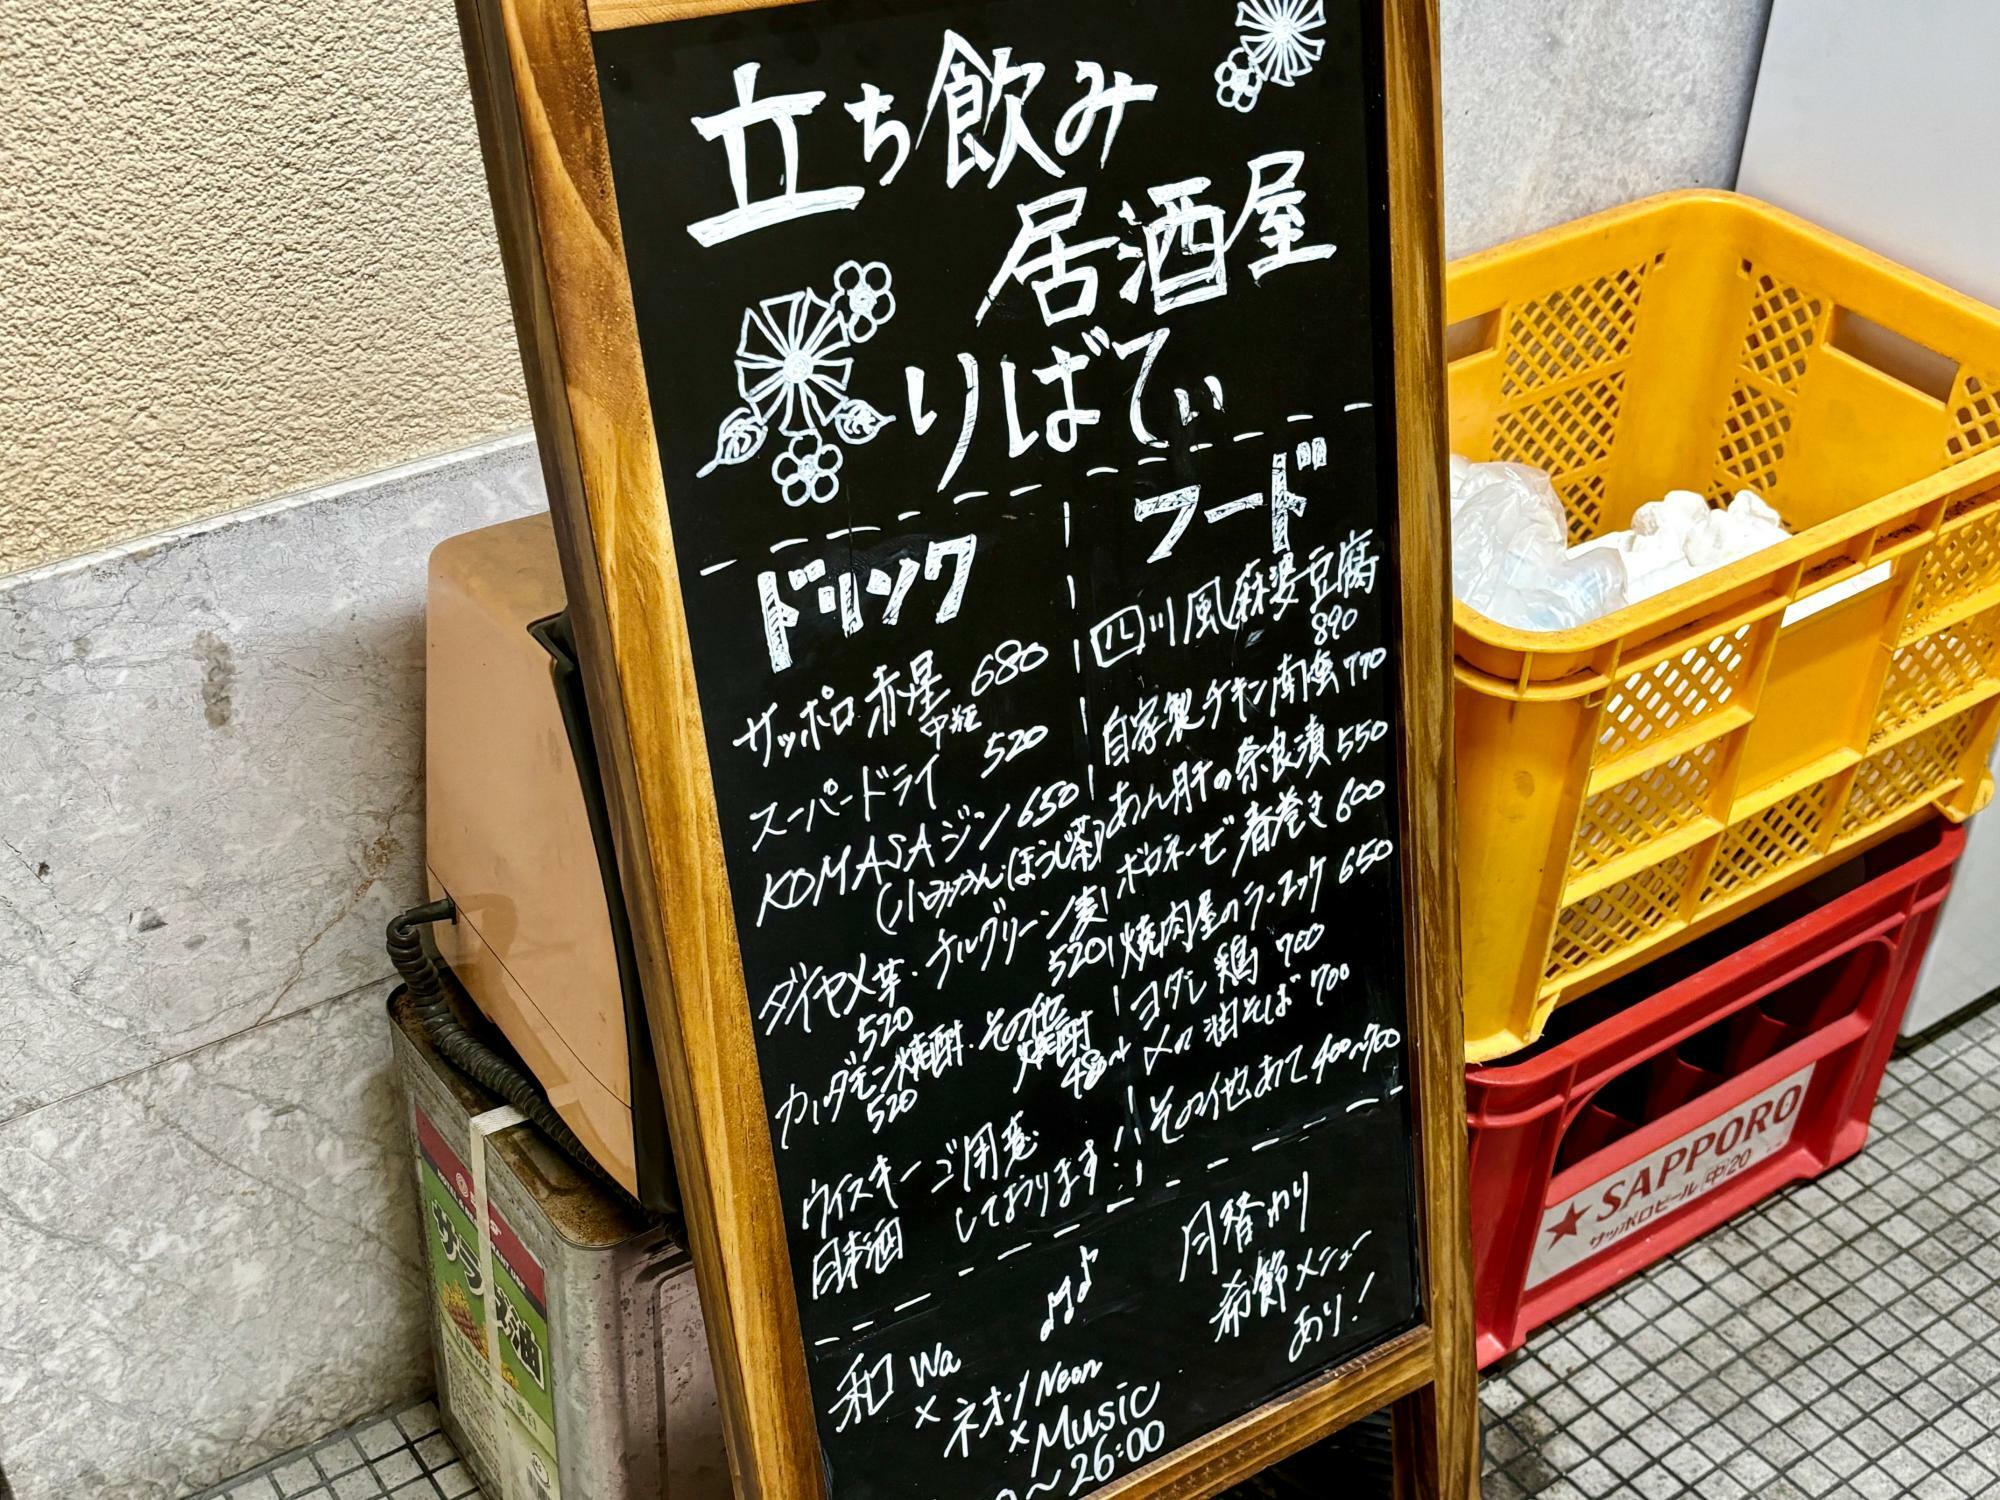 立ち飲み
居酒屋
りばてぃ
ドリンク
サッポロ赤星 680
中瓶
スーパードライ 520
KOMASAジン 650
(小みかん・ほうじ茶)
ダイヤメ芋・チルグリーン麦
520 520
カルダモン焼酎・その他
焼酎
520 480〜
ウイスキー ご用意
日本酒 しております!!
フード
四川風麻婆豆腐
890
自家製チキン南蛮 770
あん肝の奈良漬 550
ボロネーゼ春巻き 600
焼肉屋のラーユッケ 650
ヨダレ鶏 700
〆の油そば 700
その他あて 400〜700
和 Wa
×ネオン Neon
×Music
〜26:00
月替わり
季節メニュー
あり!
サラダ油
SAPPORO
サッポロビール 中20